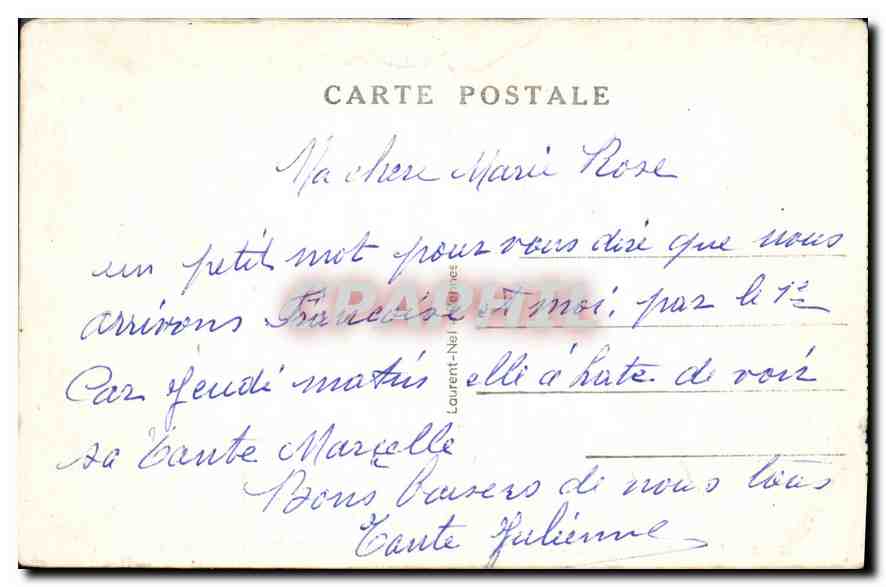 CARTE POSTALE
Ma chere Marie Rose
un petit mot pour vous dire que nous
arrivons Francoise et moi, par le 1e
Car Jeudi matin elle á hate de voir
sa tante Marcelle
Bons baisers de nous tous
Tante Julienne
Laurent-Nel Rennes
CPAPHIL